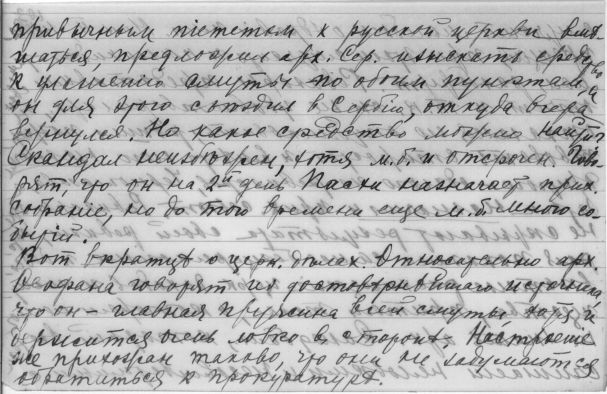 привычным пiететом к русской церкви вмѣ-
шаться, предложил арх. Сер. изыскать средство
к утешенiю смуты по обоим пунктам, и
он для этого съездил в Сербiю, откуда вчера
вернулся. Но какое средство можно найти?
Скандал неизбежен, хотя м.б. и отсрочен. Гово-
рят, что он на 2й день Пасхи назначает прих.
собранiе, но до того времени еще м.б. много со-
бытiй.
Вот вкратцѣ о церк. дѣлах. Относительно арх.
Феофана говорят из достовѣрнѣйшаго источника,
что он – главная пружина всей смуты, хотя и
держится очень ловко в сторонѣ. Настроенiе
же прихожан таково, что они не задумаются
обратиться к прокуратурѣ.